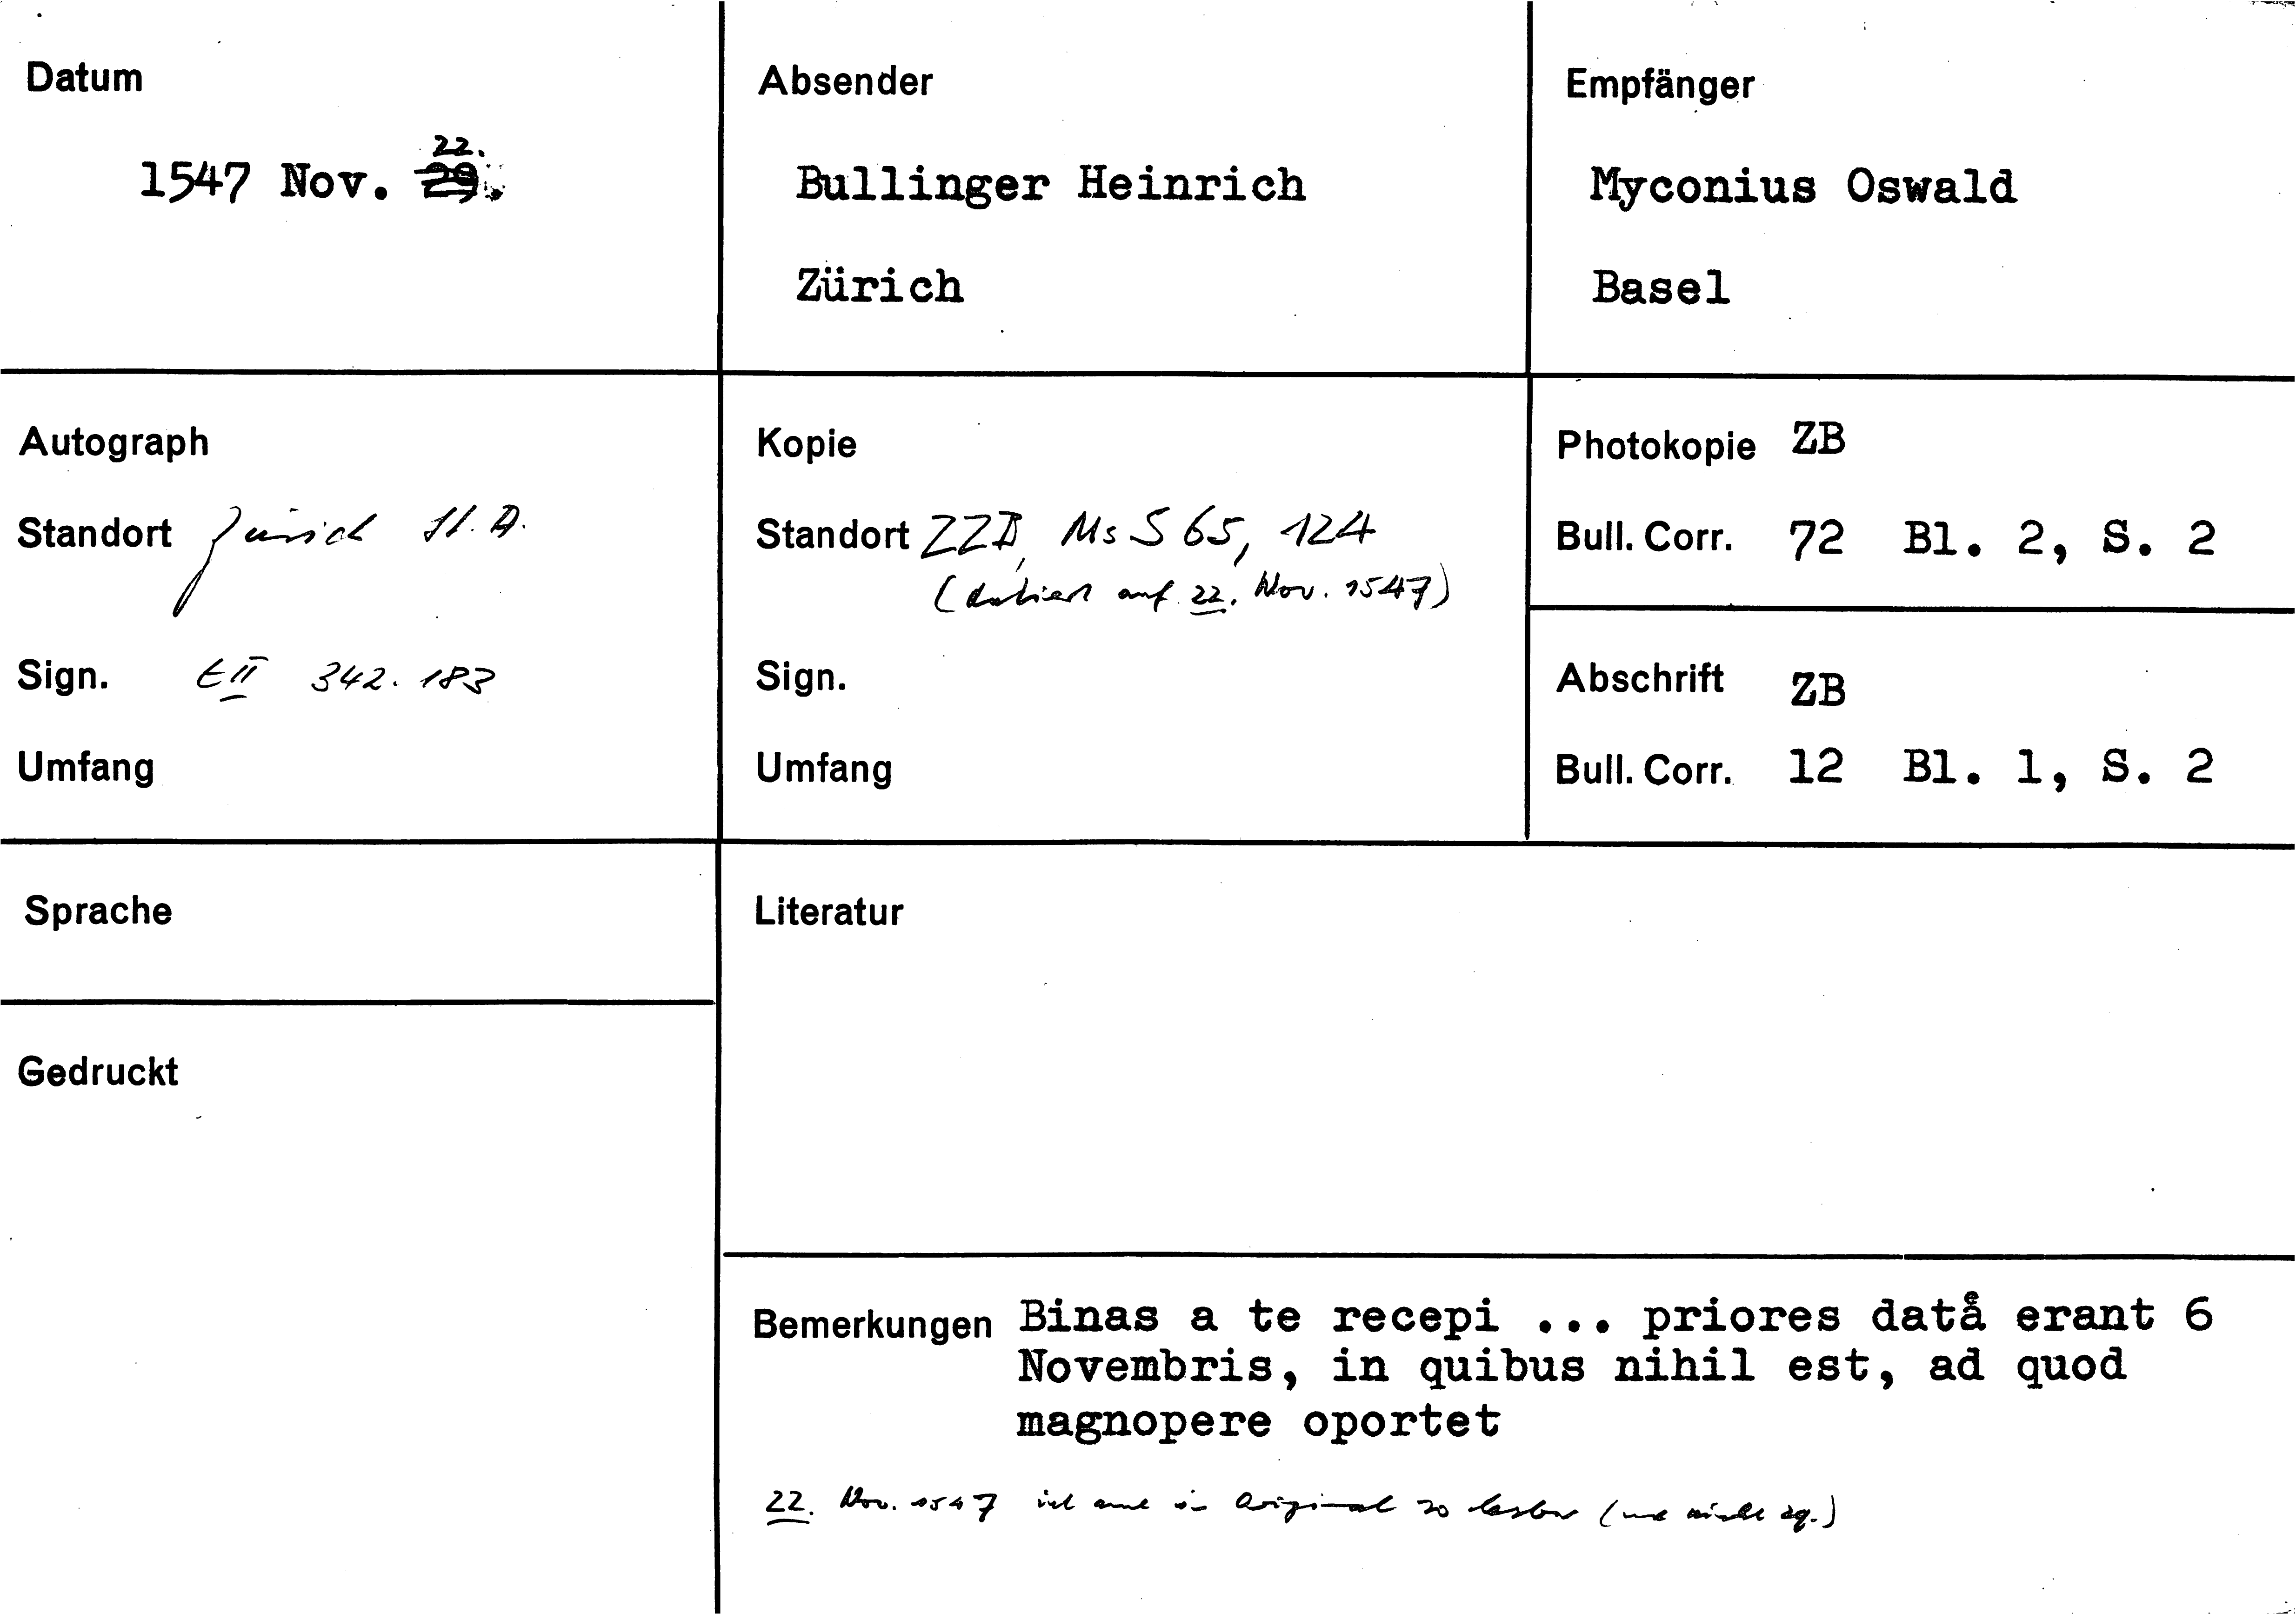 Datum
1547 Nov. 29. 22.
Absender
Bullinger Heinrich
Zürich
Empfänger
Myconius Oswald
Basel
Autograph
Standort Zürich St. A.
Sign. E II 342. 183
Umfang
Kopie
Standort ZZB, Ms S 65, 124
(datiert auf 22. Nov. 1547)
Sign.
Umfang
Photokopie ZB
Bull. Corr. 72 Bl. 2, S. 2
Abschrift ZB
Bull. Corr. 12 Bl. 1, S. 2
Sprache
Gedruckt
Literatur
Bemerkungen Binas a te recepi ... priores datå erant 6
Novembris, in quibus nihil est, ad quod
magnopere oportet
22. Nov. 1547 ist auch im Original so lesbar (und nicht 29.)